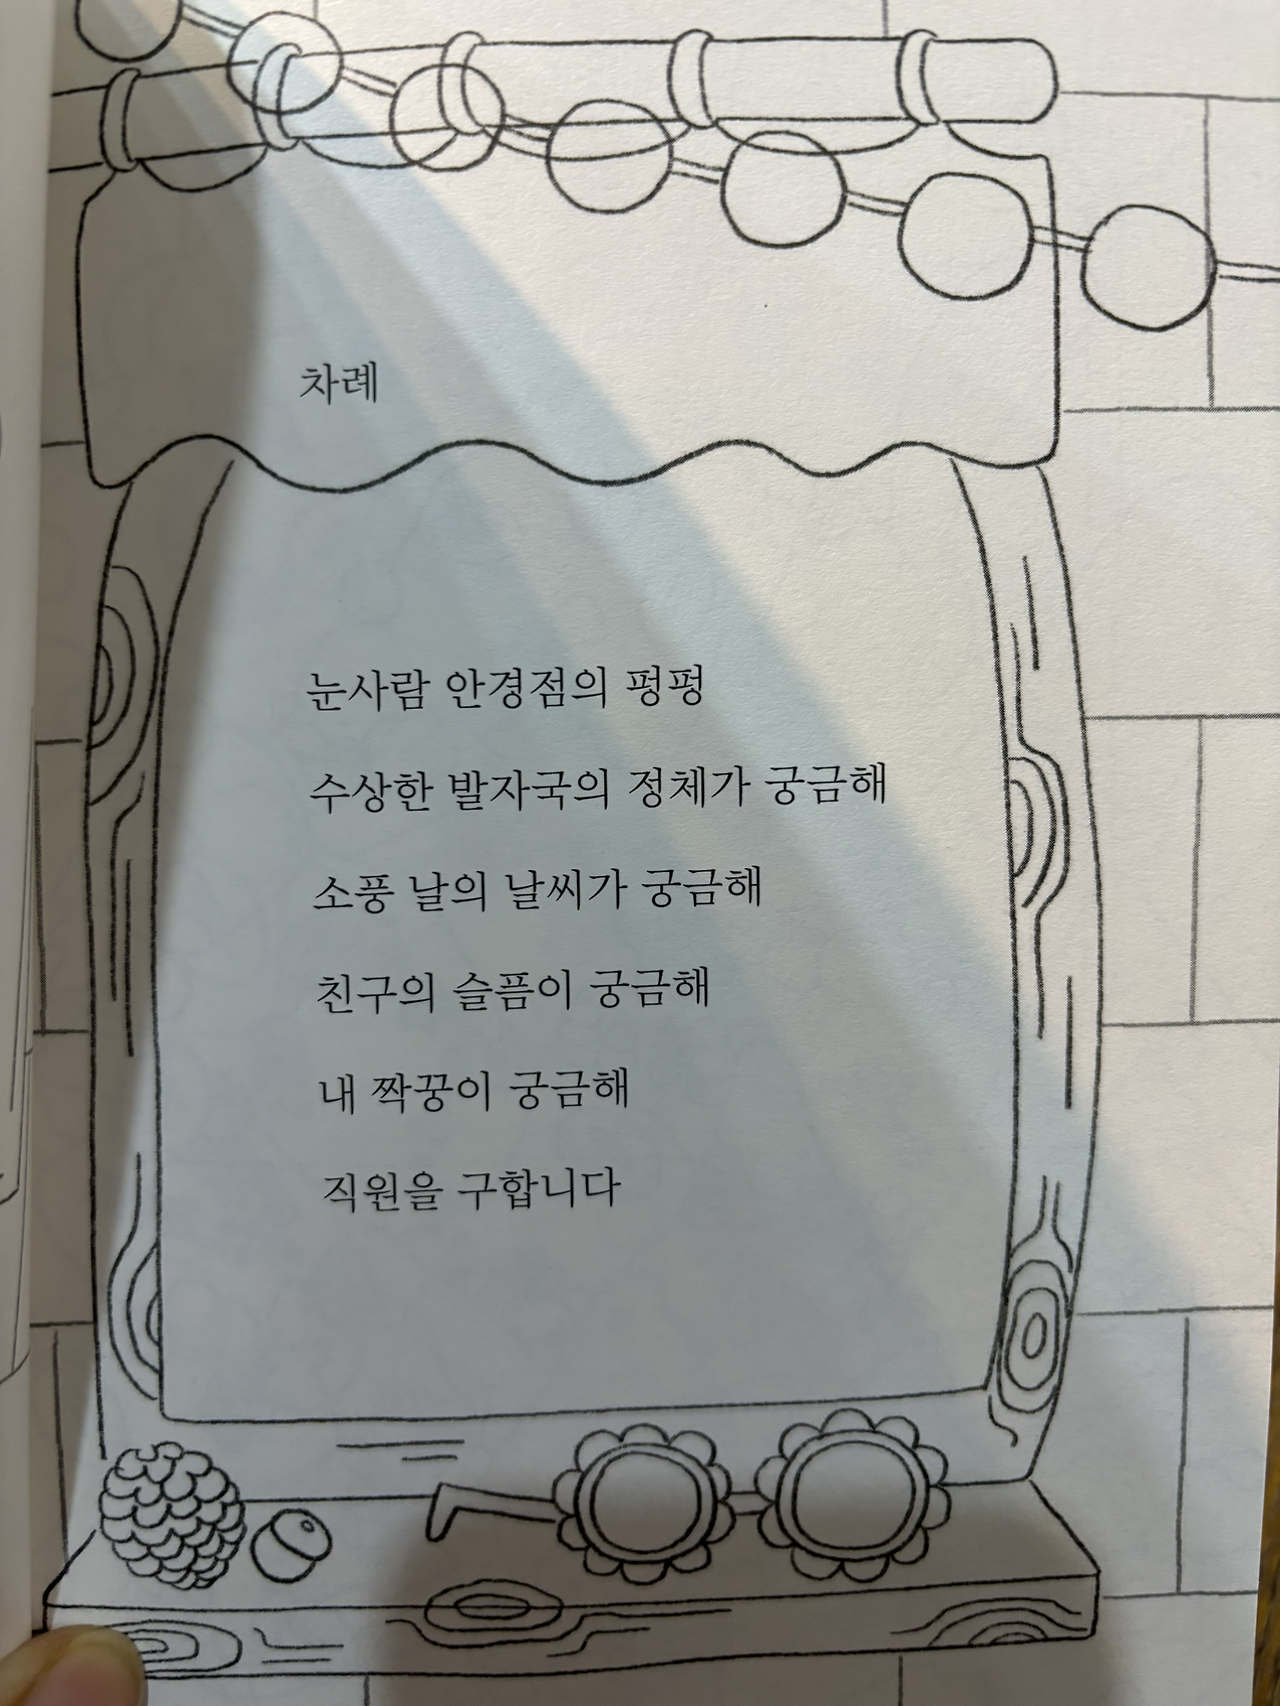 차례
눈사람 안경점의 펑펑
수상한 발자국의 정체가 궁금해
소풍 날의 날씨가 궁금해
친구의 슬픔이 궁금해
내 짝꿍이 궁금해
직원을 구합니다